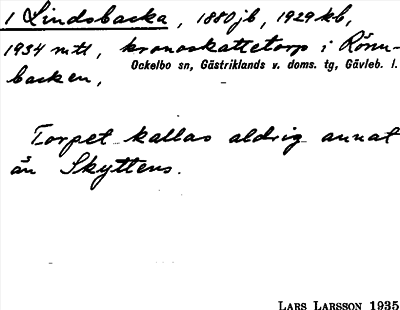 1 Lindsbacka, 1880 jb, 1929 kb,
1934 mtl, kronoskattetorp i Rönn-
backen,
Ockelbo sn, Gästriklands v. doms. tg, Gävleb. l.
Torpet kallas aldrig annat
än Skyttens.
LARS LARSSON 1935